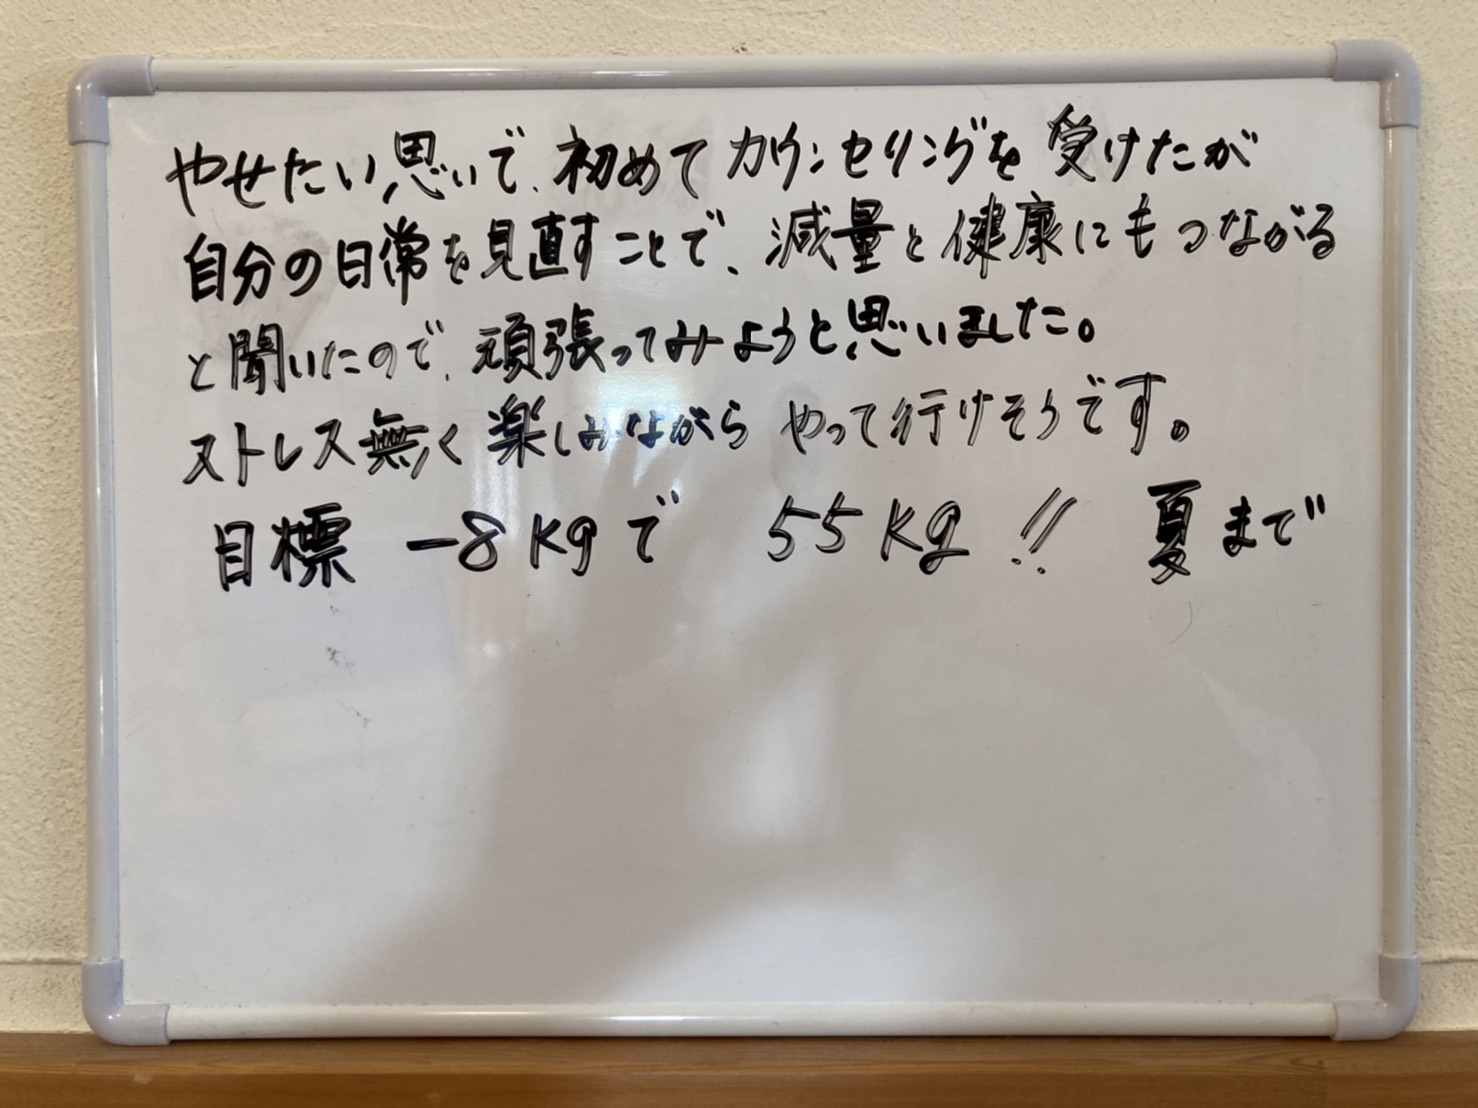 やせたい思いで、初めてカウンセリングを受けたが
自分の日常を見直すことで、減量と健康にもつながる
と聞いたので、頑張ってみようと思いました。
ストレス無く楽しみながらやって行けそうです。
目標 -8kgで 55kg!! 夏まで